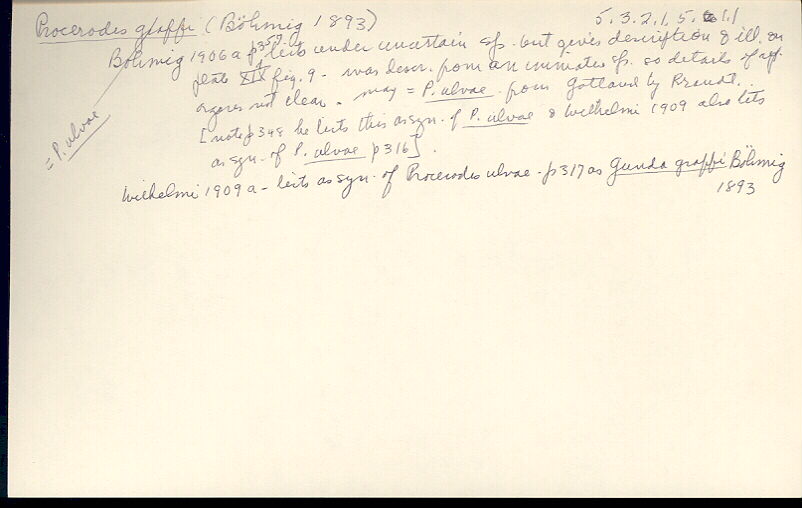 Procerodes graffi (Böhmig 1893) 5.3.2.1.5. 1.1
Böhmig 1906a p359 lists under uncertain sp. but gives description & ill. on
plate XIX fig. 9 - was descr. from an immature sp. so details of rep.
organs not clear. may = P. ulvae from Gotland by Brandt.
[note p348 he lists this as syn. of P. ulvae & Wilhelmi 1909 also lists
as syn. of P. ulvae p316].
= P. ulvae
Wilhelmi 1909a - lists as syn. of Procerodes ulvae - p317 as Gunda graffi Böhmig
1893